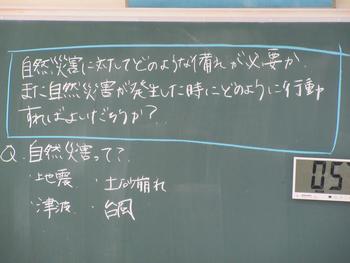 自然災害に対してどのような備えが必要か、
また自然災害が発生した時にどのように行動
すればよいだろうか?
Q. 自然災害って?
・地震 ・土砂崩れ
・津波 ・台風
05